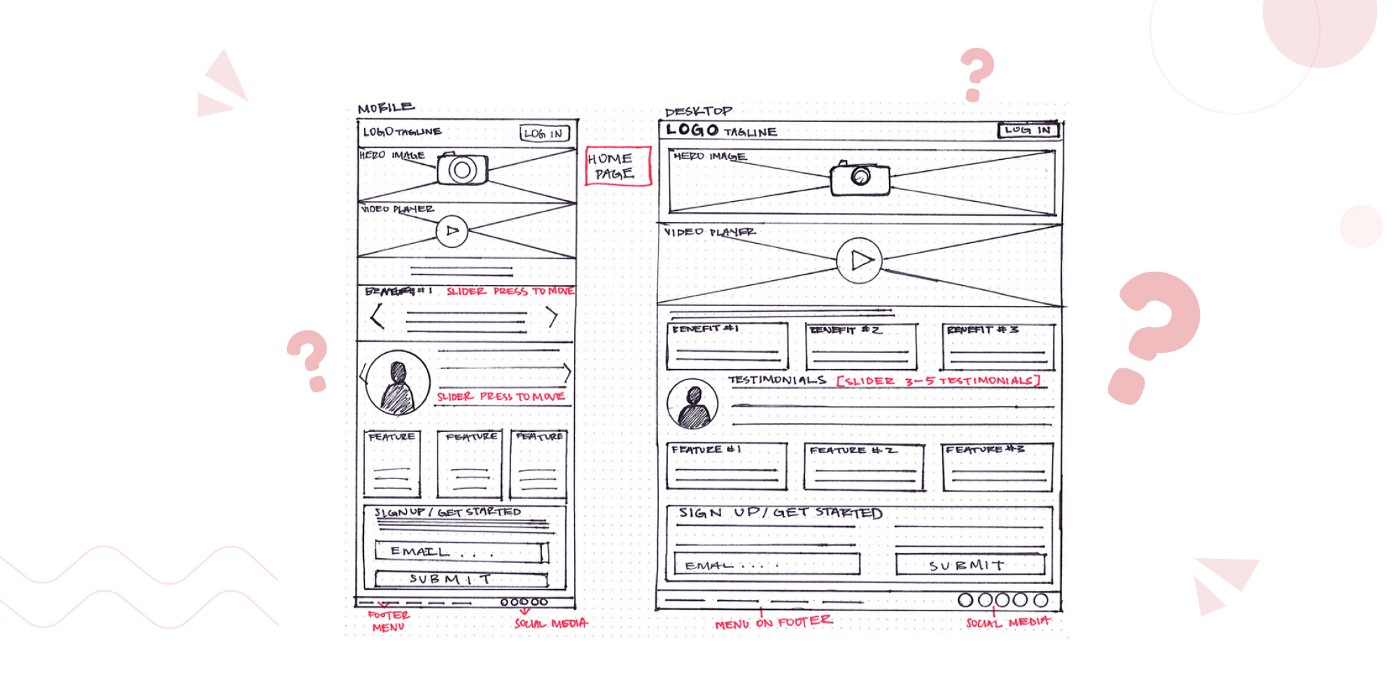 MOBILE
LOGO TAGLINE
LOG IN
HERO IMAGE
VIDEO PLAYER
BENEFIT #1 SLIDER PRESS TO MOVE
SLIDER PRESS TO MOVE
FEATURE FEATURE FEATURE
SIGNUP / GET STARTED
EMAIL . . .
SUBMIT
FOOTER
MENU
SOCIAL MEDIA
HOME
PAGE
DESKTOP
LOGO TAGLINE
LOG IN
HERO IMAGE
VIDEO PLAYER
BENEFIT #1 BENEFIT #2 BENEFIT #3
TESTIMONIALS [SLIDER 3-5 TESTIMONIALS]
FEATURE #1 FEATURE #2 FEATURE #3
SIGN UP / GET STARTED
EMAL . . . .
SUBMIT
MENU ON FOOTER
SOCIAL MEDIA